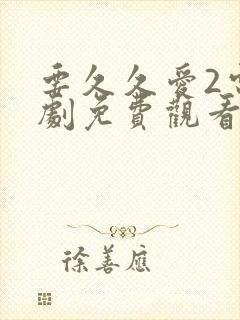 要久久愛2電
劇免費觀看
徐善應